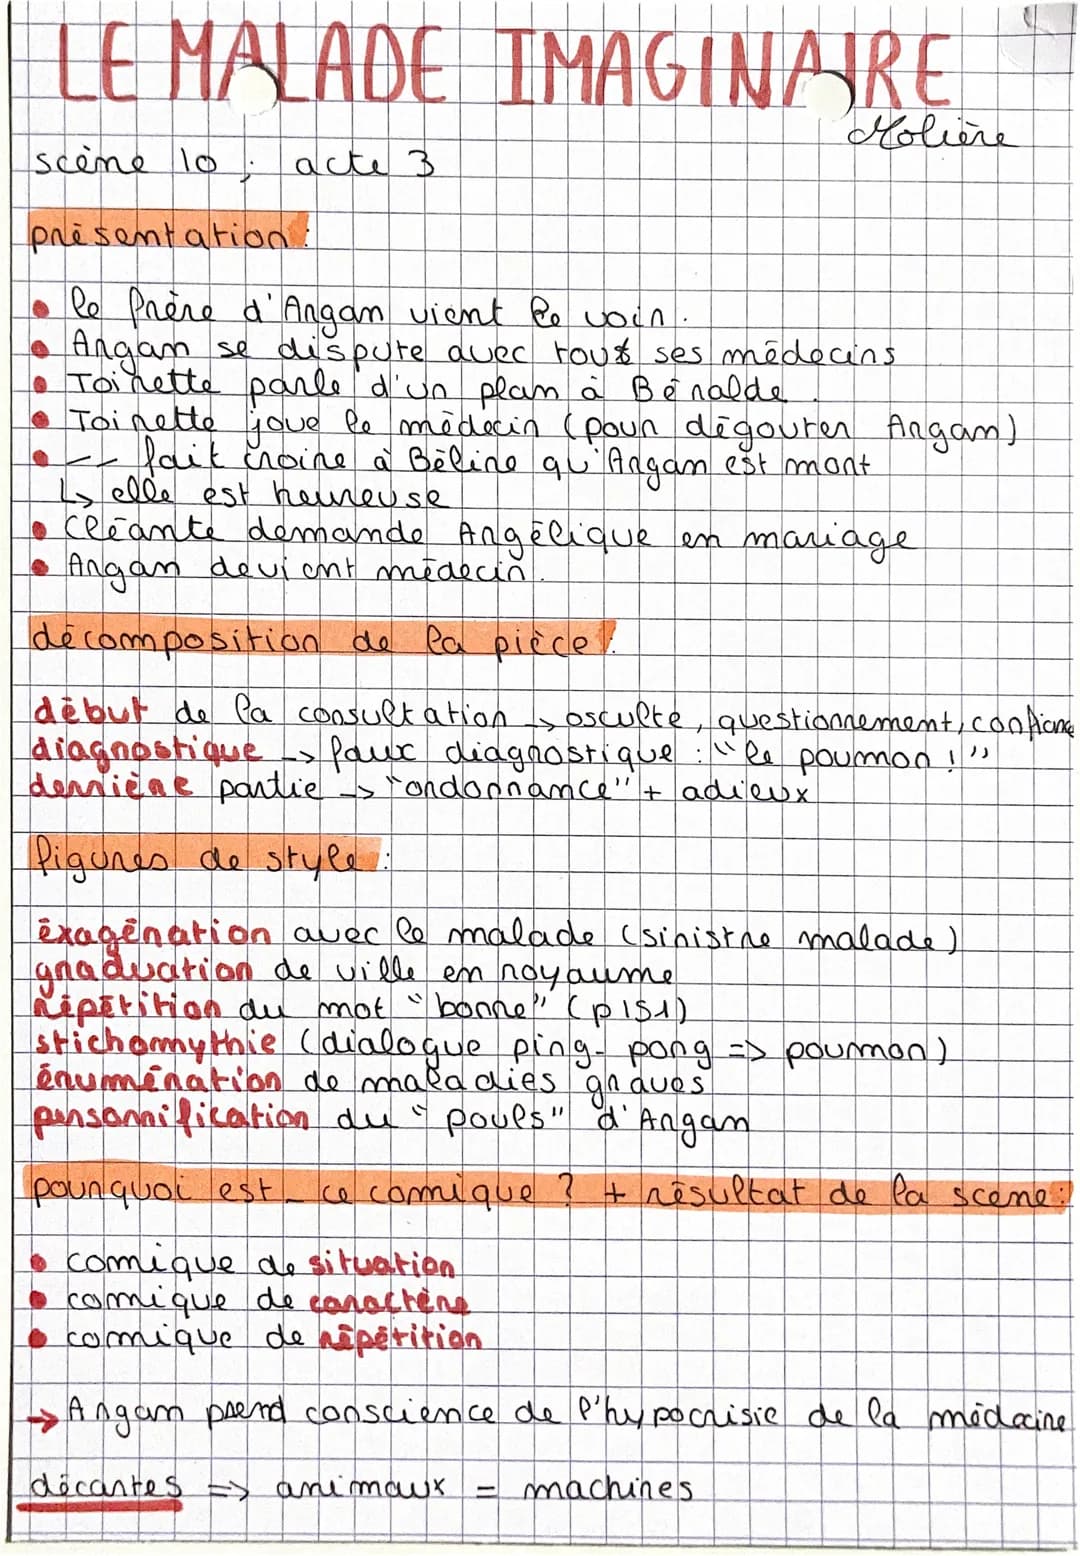 LE MALADE IMAGINAIRE
Molière
scène 10 ; acte 3
présentation :
• le frère d'Argan vient le voir.
• Argan se dispute avec tous ses médecins
• Toinette parle d'un plan à Béralde.
• Toinette joue le médecin (pour dégouter Argan)
• -- fait croire à Béline qu'Argan est mort
↳ elle est heureuse
• Cléante demande Angélique en mariage
• Argan devient médecin.
décomposition de la pièce :
début de la consultation → osculte, questionnement, confiance
diagnostique → faux diagnostique : "le poumon !"
dernière partie → "ordonnance" + adieux
figures de style :
éxagération avec le malade (sinistre malade)
graduation de ville en royaume
répétition du mot "bonne" (p151)
stichomythie (dialogue ping-pong => poumon)
énumération de maladies graves
personnification du "pouls" d'Argan
pourquoi est-ce comique ? + résultat de la scène :
• comique de situation
• comique de caractère
• comique de répétition
→ Argan prend conscience de l'hypocrisie de la médecine
décartes => animaux = machines